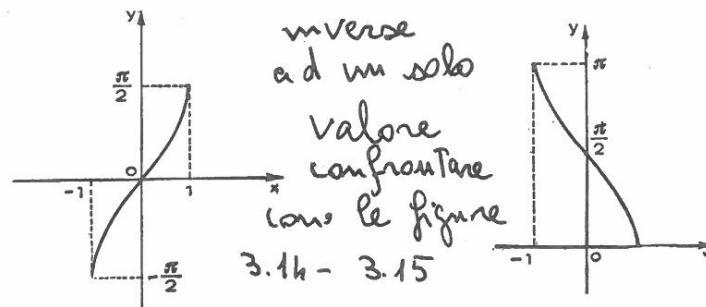 y
π/2
O
-1
1
x
-π/2
inverse
ad un solo
valore
confrontare
con le figure
3.14 - 3.15
y
π
π/2
-1
O